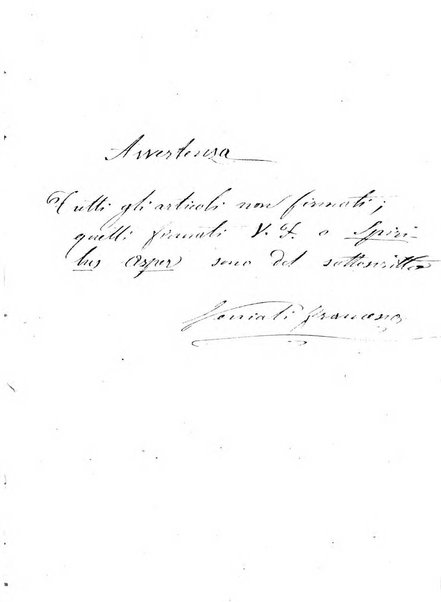 Avvertenza
Tutti gli articoli non firmati;
quelli firmati V. F. o Spiri
tus Asper sono del sottoscritto
Francesco